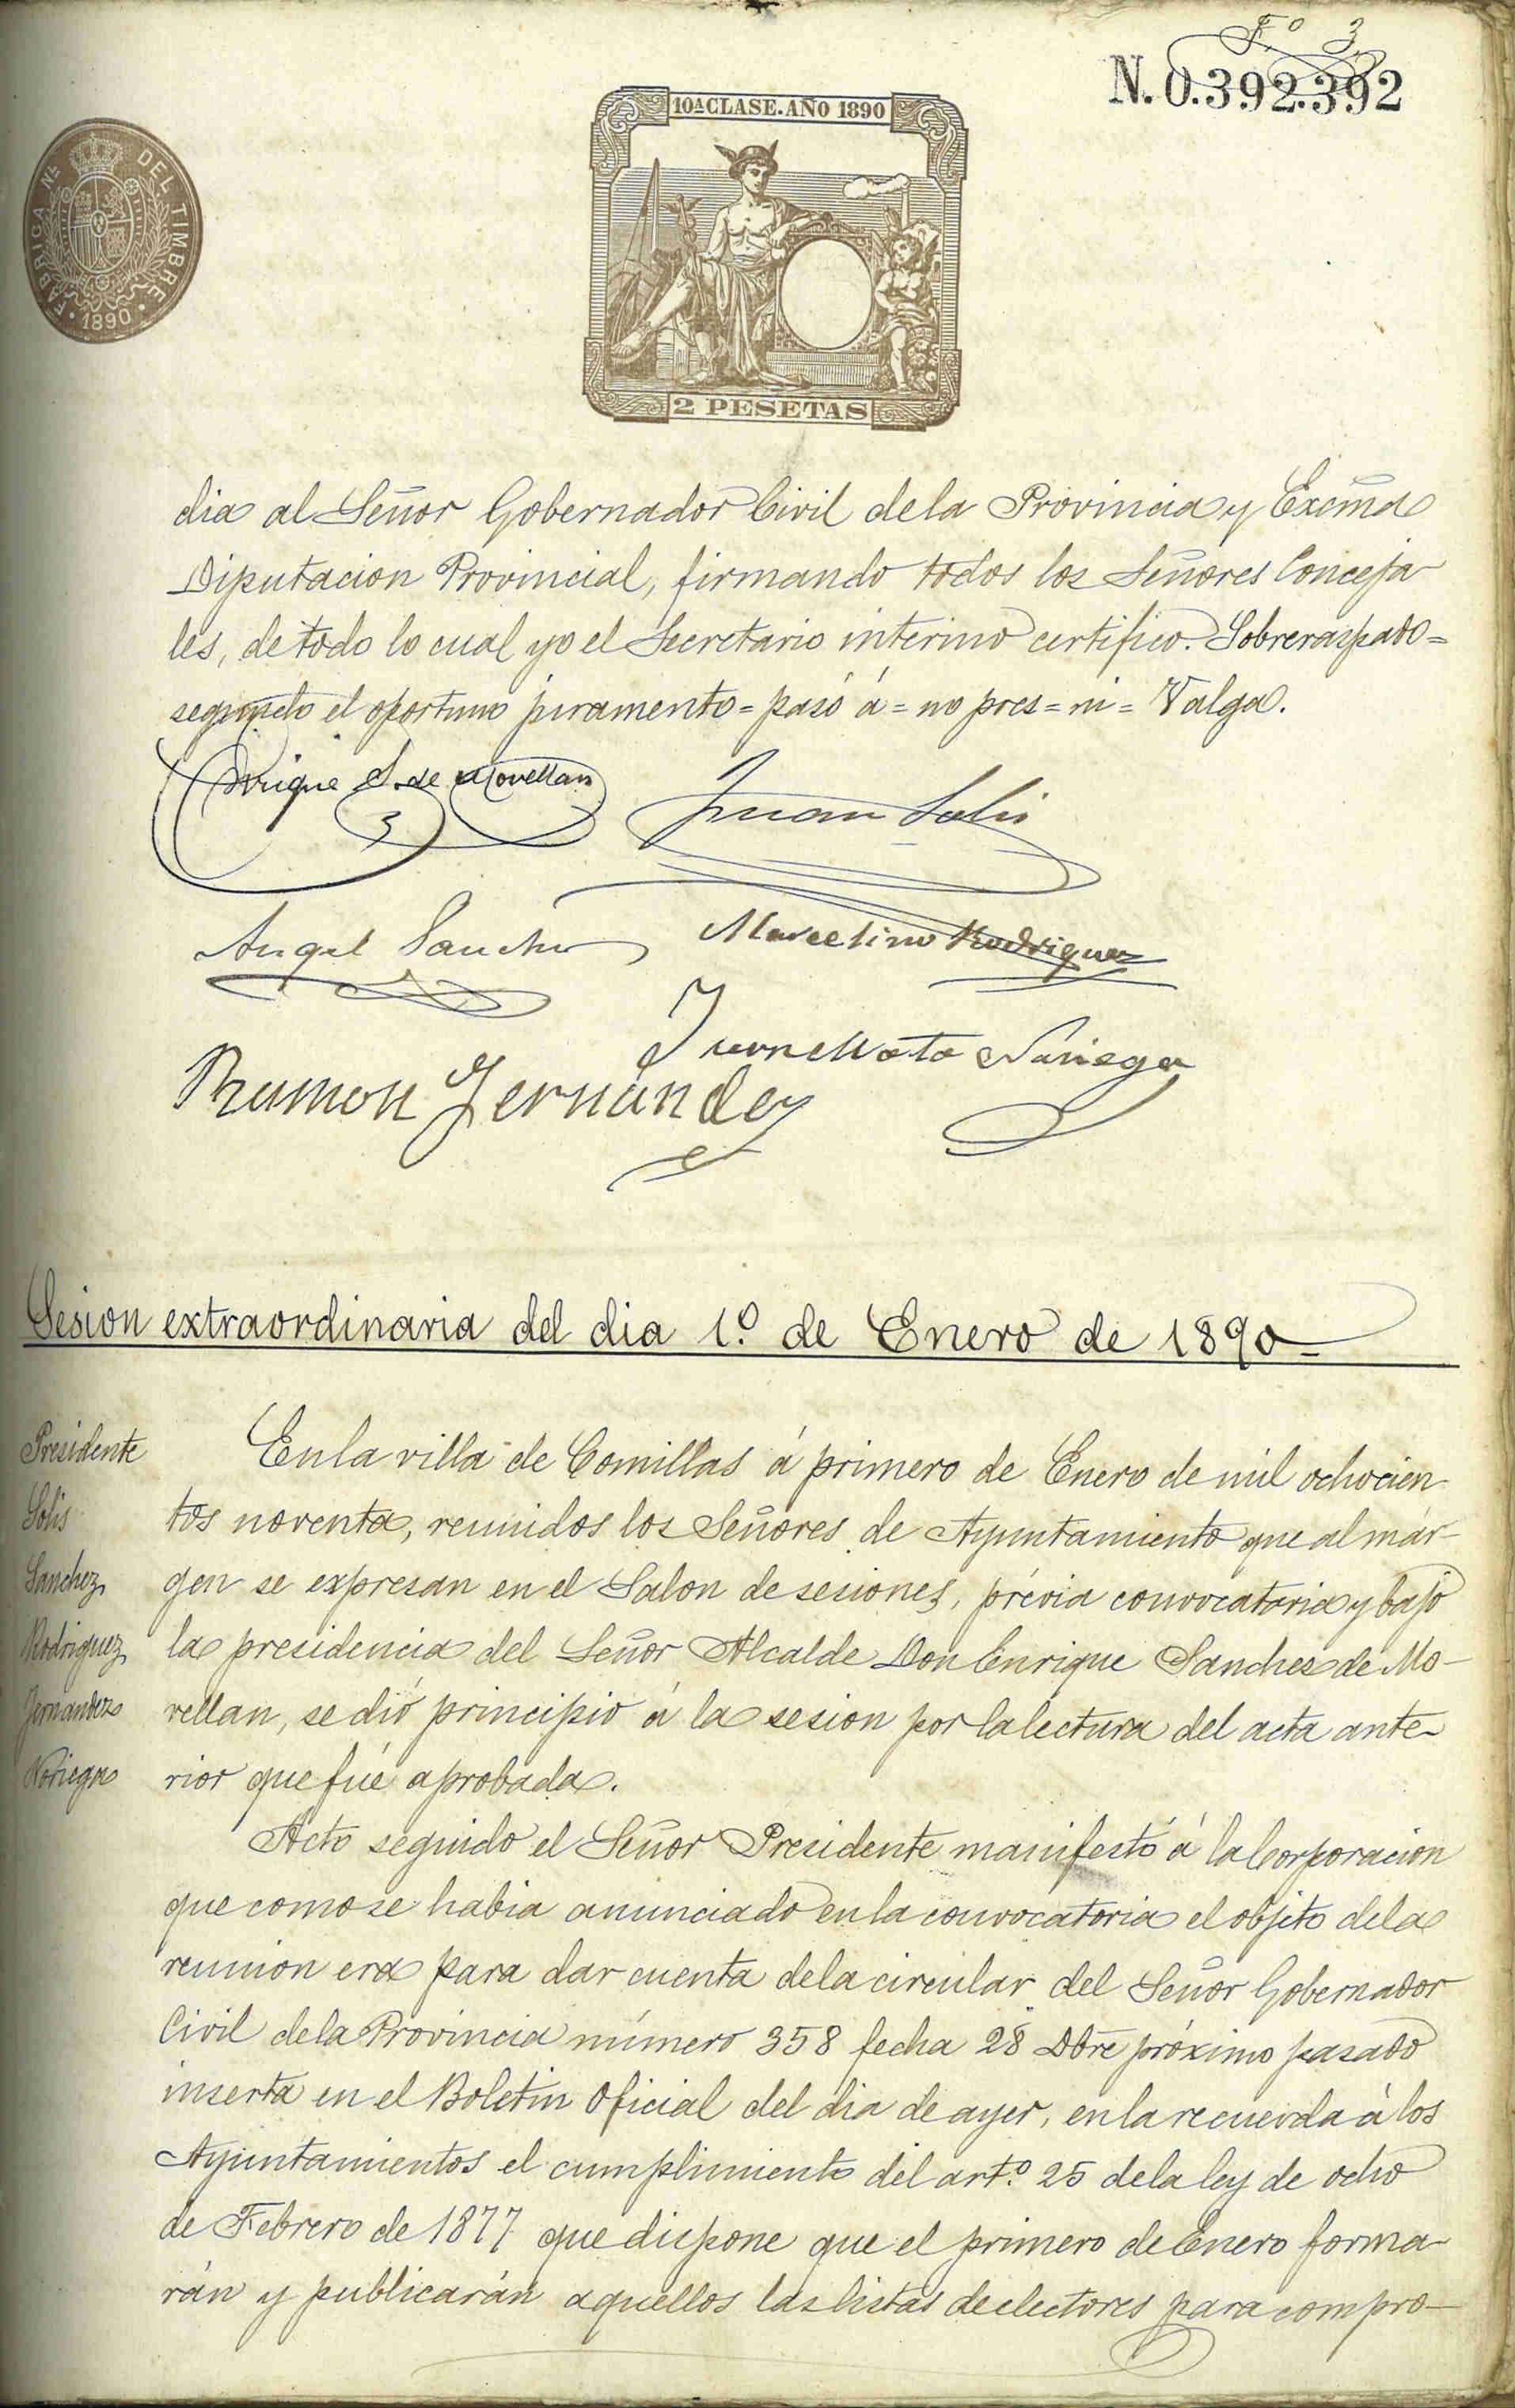 F.º 3
N. 0.392.392
10ª CLASE. AÑO 1890
FABRICA NAL DEL TIMBRE
1890
2 PESETAS
dia al Señor Gobernador Civil de la Provincia y Excma
Diputacion Provincial, firmando todos los Señores Conceja
les, de todo lo cual yo el Secretario interino certifico. Sobreraspado=
segundo el oportuno juramento=pasó á=no pres=ni= Valga.
Enrique S. de Movellan
Juan Solis
Angel Sanchez
Marcelino Rodriguez
Juan Mata Noriega
Ramon Fernandez
Sesion extraordinaria del dia 1.º de Enero de 1890=
Presidente
Solis
Sanchez
Rodriguez
Fernandez
Noriega
En la villa de Comillas á primero de Enero de mil ochocien
tos noventa, reunidos los Señores de Ayuntamiento que al már-
gen se expresan en el Salon de sesiones, prévia convocatoria y bajo
la presidencia del Señor Alcalde Don Enrique Sanchez de Mo-
vellan, se dió principio á la sesion por la lectura del acta ante-
rior que fué aprobada.
Acto seguido el Señor Presidente manifestó á la Corporacion
que como se habia anunciado en la convocatoria el objeto de la
reunion era para dar cuenta de la circular del Señor Gobernador
Civil de la Provincia número 358 fecha 28 Dbre próximo pasado
inserta en el Boletin Oficial del dia de ayer, en la recuerda á los
Ayuntamientos el cumplimiento del art.º 25 de la ley de ocho
de Febrero de 1877 que dispone que el primero de Enero forma-
rán y publicarán aquellos las listas de electores para compro-